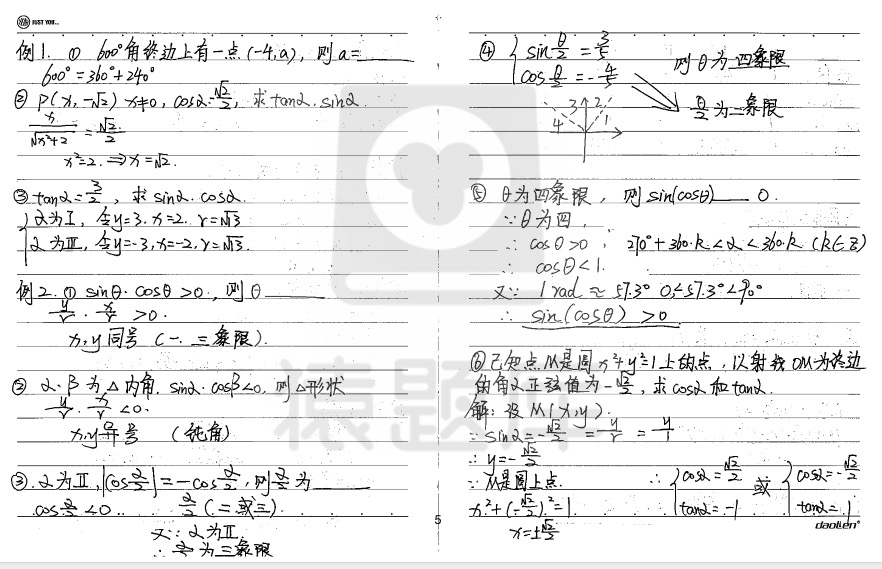 JUST YOU...
例1. ① 600°角终边上有一点(-4,a), 则a=____
600°=360°+240°
② P(x,-√2) x≠0, cosα=√2/2, 求tanα. sinα
x/√(x²+2) = √2/2
x²=2. ⇒ x=√2.
③ tanα=3/2, 求 sinα. cosα.
α为Ⅰ, 令y=3. x=2. r=√13
α为Ⅲ, 令y=-3, x=-2, r=√13.
例2. ① sinθ·cosθ>0, 则θ____
y/r · x/r >0.
x,y同号 (一. 三象限).
② α.β为△内角. sinα·cosβ<0. 则△形状
y/r · x/r <0.
x,y异号 (钝角)
③. α为Ⅱ, |cos α/2|=-cos α/2, 则 α/2 为____
cos α/2 <0.. α/2 (二或三).
又∵ α为Ⅱ,
∴ α/2 为三象限
④ { sin θ/2 = 3/5
cos θ/2 = -4/5
则θ为 四象限
θ/2 为二象限
3 2
4 1
⑤ θ为四象限, 则sin(cosθ)____0.
∵θ为四,
∴ cosθ>0; 270°+360·k<α<360·k (k∈Z)
∴ cosθ<1.
又∵ 1 rad ≈ 57.3° 0≤57.3°<90°
∴ sin(cosθ) >0
⑥ 已知点M是圆x²+y²=1上的点, 以射线OM为终边
的角α正弦值为-√2/2, 求cosα和tanα.
解: 设M(x,y).
∵ sinα=-√2/2 = y/r = y/1
∴ y=-√2/2
∵ M是圆上点.
x²+(-√2/2)²=1
x=±√2/2
∴ { cosα=√2/2 或 { cosα=-√2/2
tanα=-1 tanα=1
5
daolien®
猿题库